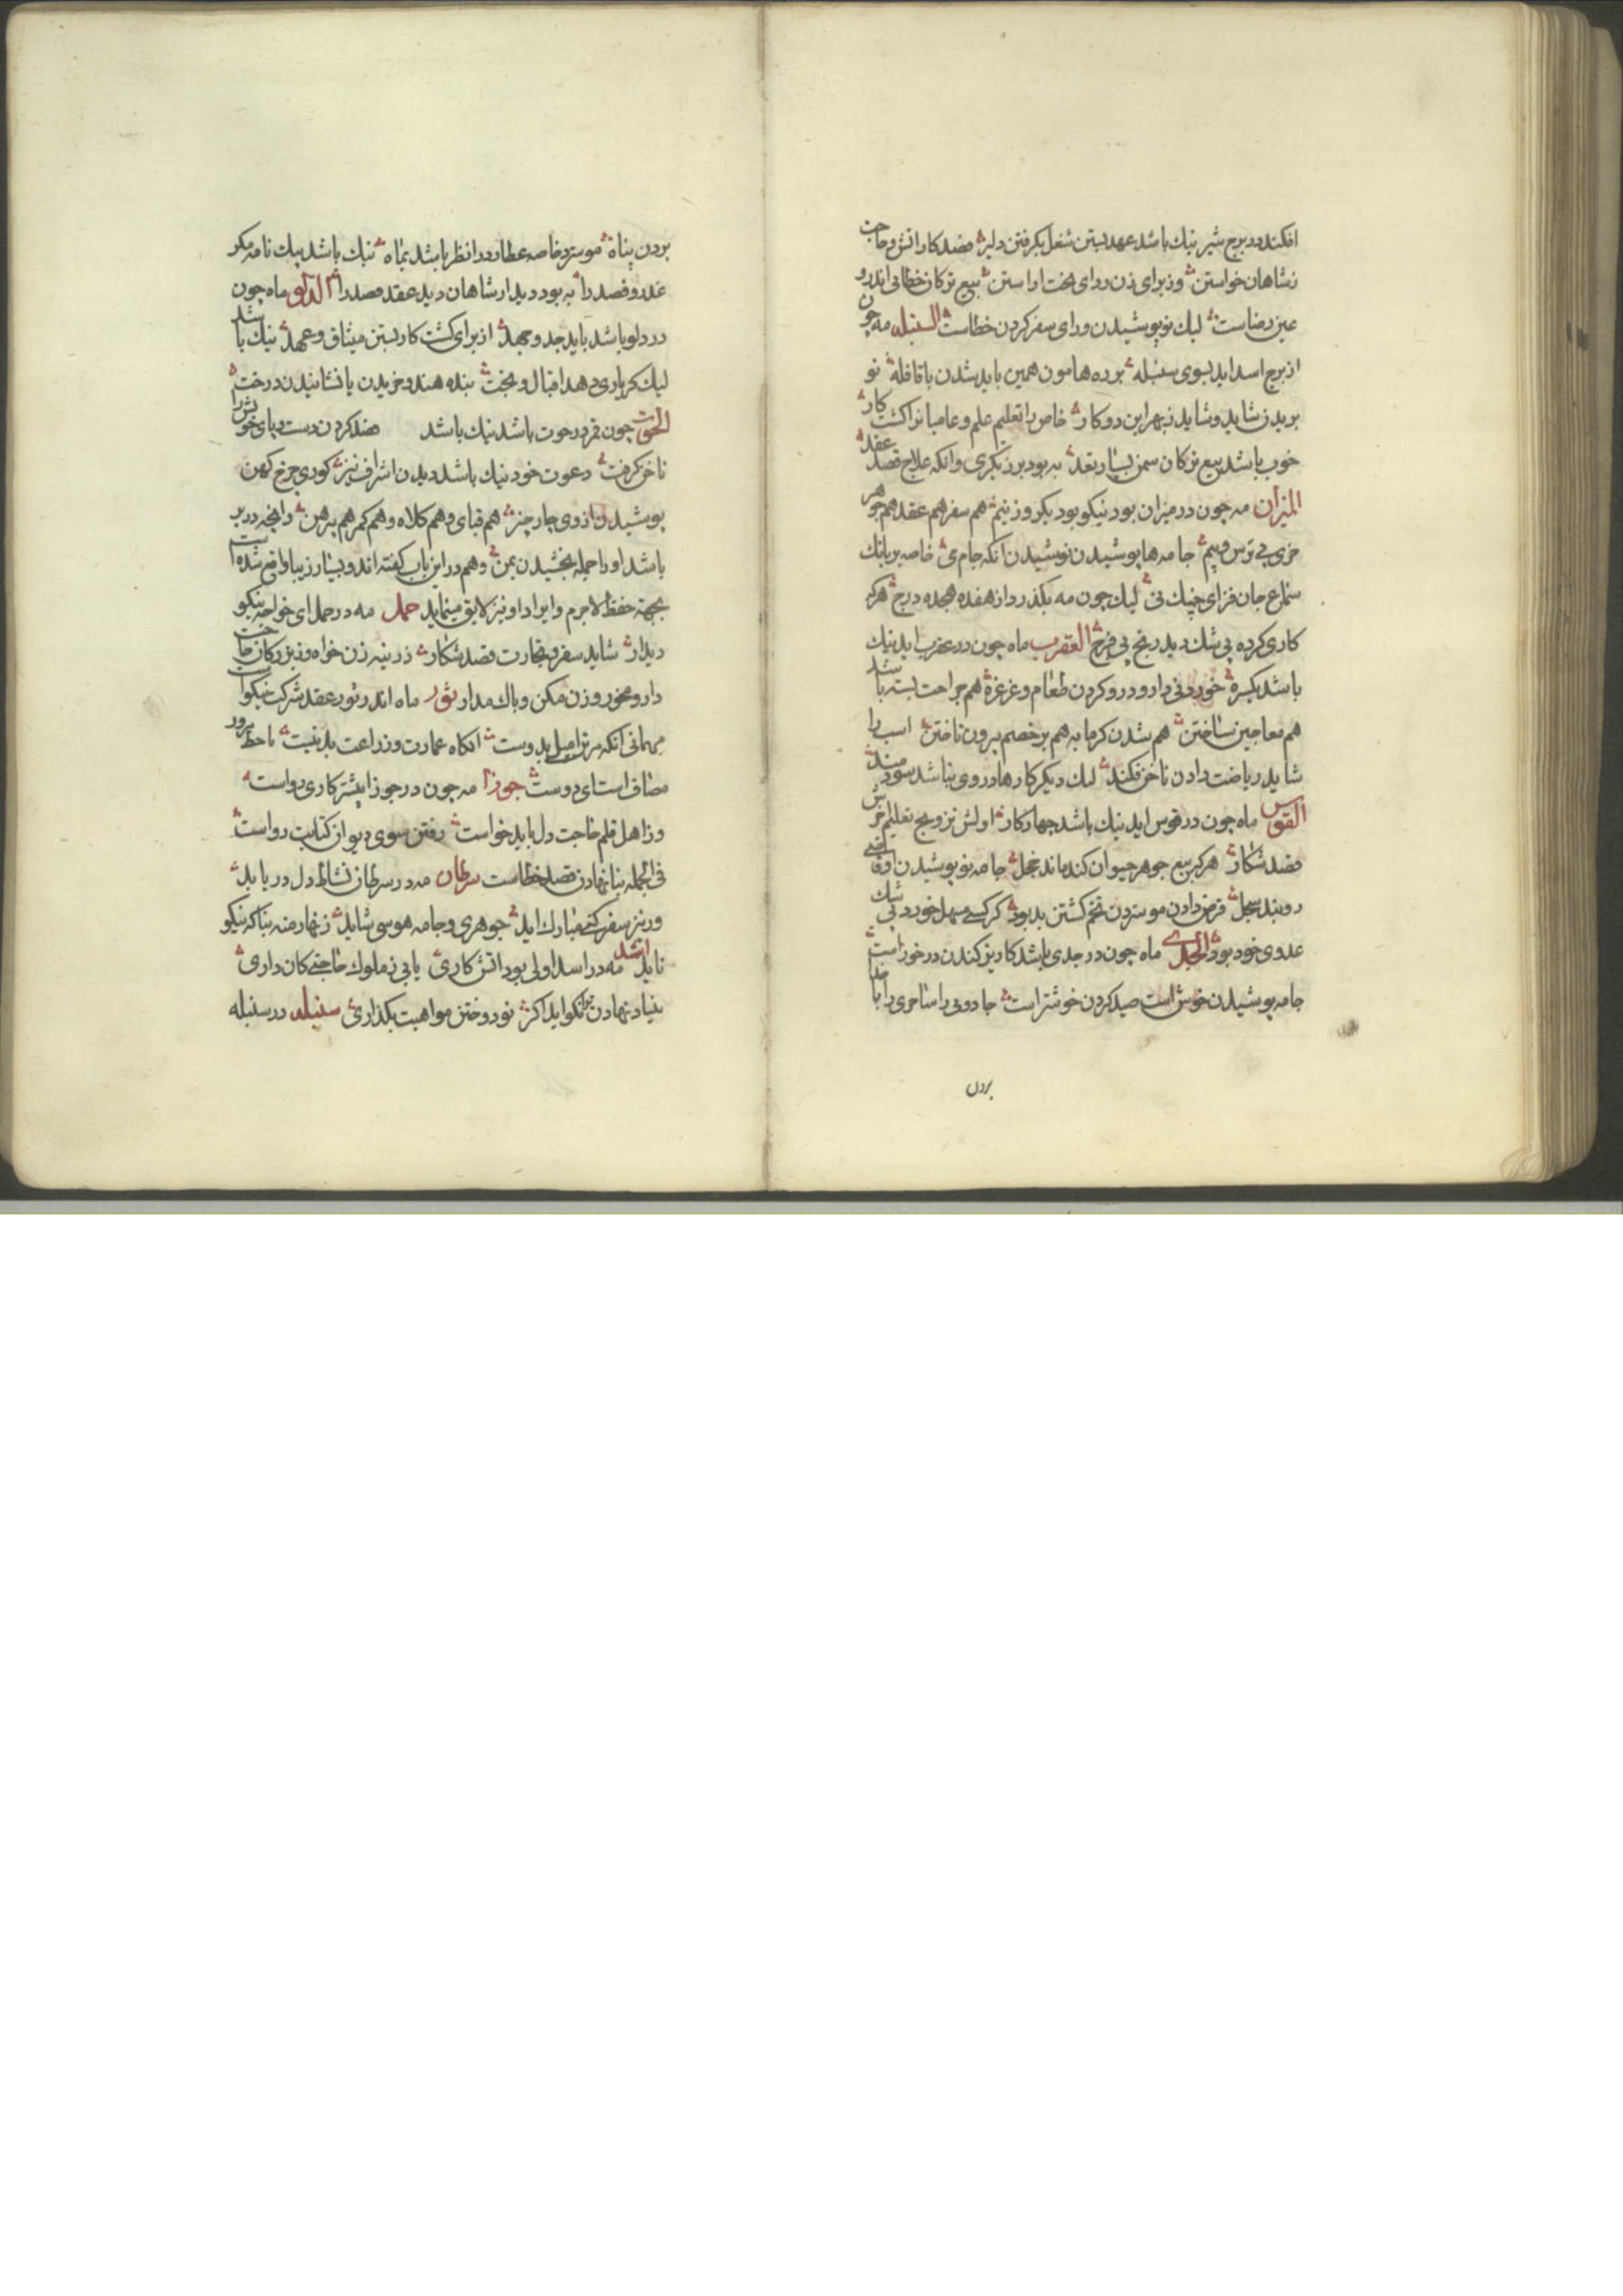 افکند در برج شیر نیك باشد عهد بستن شغل بگرفتن دلیر قصد کار آتش و حاجت
ز شاهان خواستن وز برای زن روای تخت اراستن بیع ترکان خطائی اندرو
عین رضاست لیك نو پوشیدن ورای سفر کردن خطاست السنبله مه چون
از برج اسد اید بسوی سنبله بر ره هامون همین باید شدن با قافله نو
بریدن شاید و شاید ز بهر این دو کار خاص را تعلیم علم و عامیانرا کشت کار
خوب باشد بیع ترکان سمن بسیار بعد به بود برزیکری وانکه علاج فصد عقد
المیزان مه چون در میزان بود نیکو بود یکروز نیم هم سفر هم عقد هم جوهر
خری بی ترس و بیم جامه ها پوشیدن نوشیدن انکه جام می خاصه بر بانك
سماع جان فزای چنك نی لیك چون مه بگذرد از هفده هجده درج هر که
کاری کرده بی شك دید رنج بی فرج العقرب ماه چون در عقرب اید نیك
باشد یکسره خوردنی دارو و رو کردن طعام و غرغره هم جراحت بسته باشد
هم معاجین ساختن هم شدن کرمابه هم بر خصم بیرون تاختن اسب را
شاید ریاضت دادن ناخن فکند لیك دیگر کارها در وی نباشد سودمند
القوس ماه چون در قوس اید نیك باشد چهار کار اولش تزویج تعلیم
قصد شکار هر که بیع جوهر حیوان کند ماند خجل جامه نو پوشیدن
قرض دادن مو ستردن تخم کشتن بد بود هر که مسهل خورد بی شك
عدوی خود بود الجدی ماه چون در جدی باشد کاریز کندن در خور است
جامه پوشیدن خوش است صید کردن خوشتر است جادوئی را ساحری را با خدا
بردن
بردن پناه مو سترد خاصه عطارد را نظر باشد بماه نیك باشد پیك نامه مکر
غدر و فصد را به بود دیدار شاهان دید عقد قصد را الدلو ماه چون
در دلو باشد باید جد و جهد از برای کشت کار بستن میثاق و عهد نیك باشد
لیك کر یاری دهد اقبال و بخت بنده هندو خریدن یا نشانیدن درخت
الحوت چون قمر در حوت باشد نیك باشد فصد کردن دست و پای خویش را
ناخن گرفت دعوت خود نیك باشد دیدن اشراف نیز کوری چرخ کهن
پوشیدن از وی چار چیز هم قبای و هم کلاه و هم کمر هم پیرهن وانچه در بر
باشد او را جمله بخشیدن بمن و هم در این باب گفته اند و بسیار زیبا واقع شده است
بجهة حفظ لاجرم و ایراد او نیز لایق مینماید حمل مه در حمل ای خواجه نیکو
دیدار شاید سفر و تجارت قصد شکار زن خواه و ز حاجت
دارو مخور وزن مکن و باك مدار ثور ماه اندر ثور عقد شرکت نیکوست
مهمانی انکه مر ترا میل بدوست انکاه عمارت و زراعت بد نیست
مصاف است ای دوست جوزا مه چون در جوزا بیشتر کاری رواست
وز اهل قلم حاجت دل باید خواست رفتن سوی دیوان کتابت رواست
فی الجمله بنا نهادن فصد خطاست سرطان مه در سرطان نشاط دل دریابد
ور نیز سفر کنی مبارك اید جوهری و جامه هوسی شاید زنهار منه بنا که نیکو
ناید اسد مه در اسد اولی بود اتش کاری یابی ز ملوك حاجتی کان داری
بنیاد نهادن نیکو اید اگر نو دوختن مواهبت بگذاری سنبله در سنبله